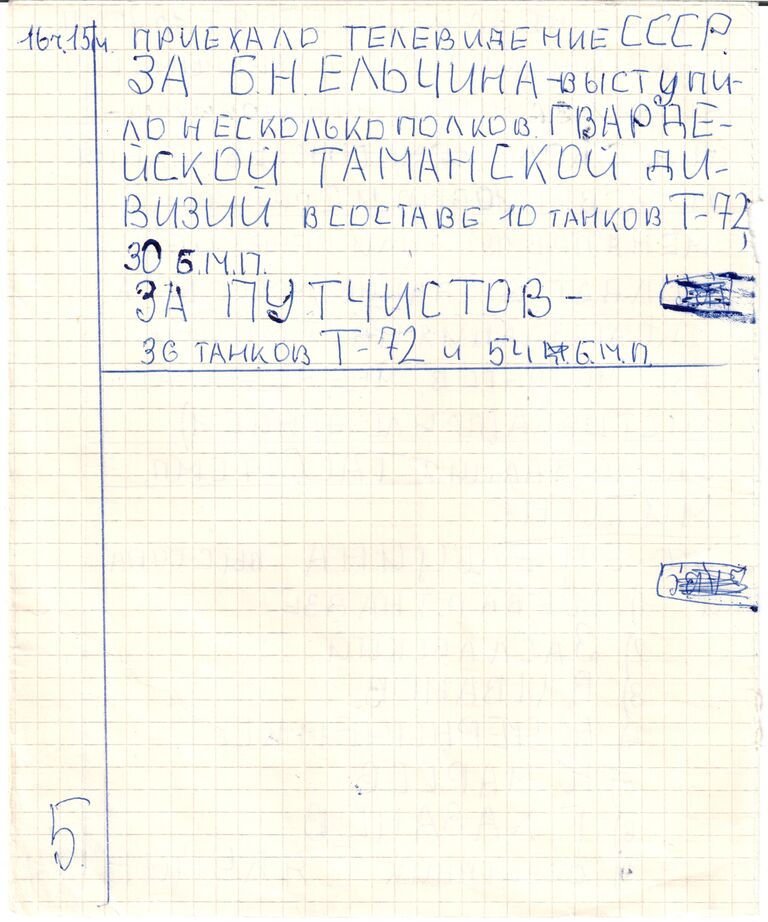 16ч.15м. ПРИЕХАЛО ТЕЛЕВИДЕНИЕ СССР.
ЗА Б.Н.ЕЛЬЧИНА-ВЫСТУПИ-
ЛО НЕСКОЛЬКО ПОЛКОВ ГВАРДЕ-
ЙСКОЙ ТАМАНСКОЙ ДИ-
ВИЗИЙ В СОСТАВЕ 10 ТАНКОВ Т-72,
30 Б.М.П.
ЗА ПУТЧИСТОВ-
36 ТАНКОВ Т-72 И 54 Б.М.П.
5.